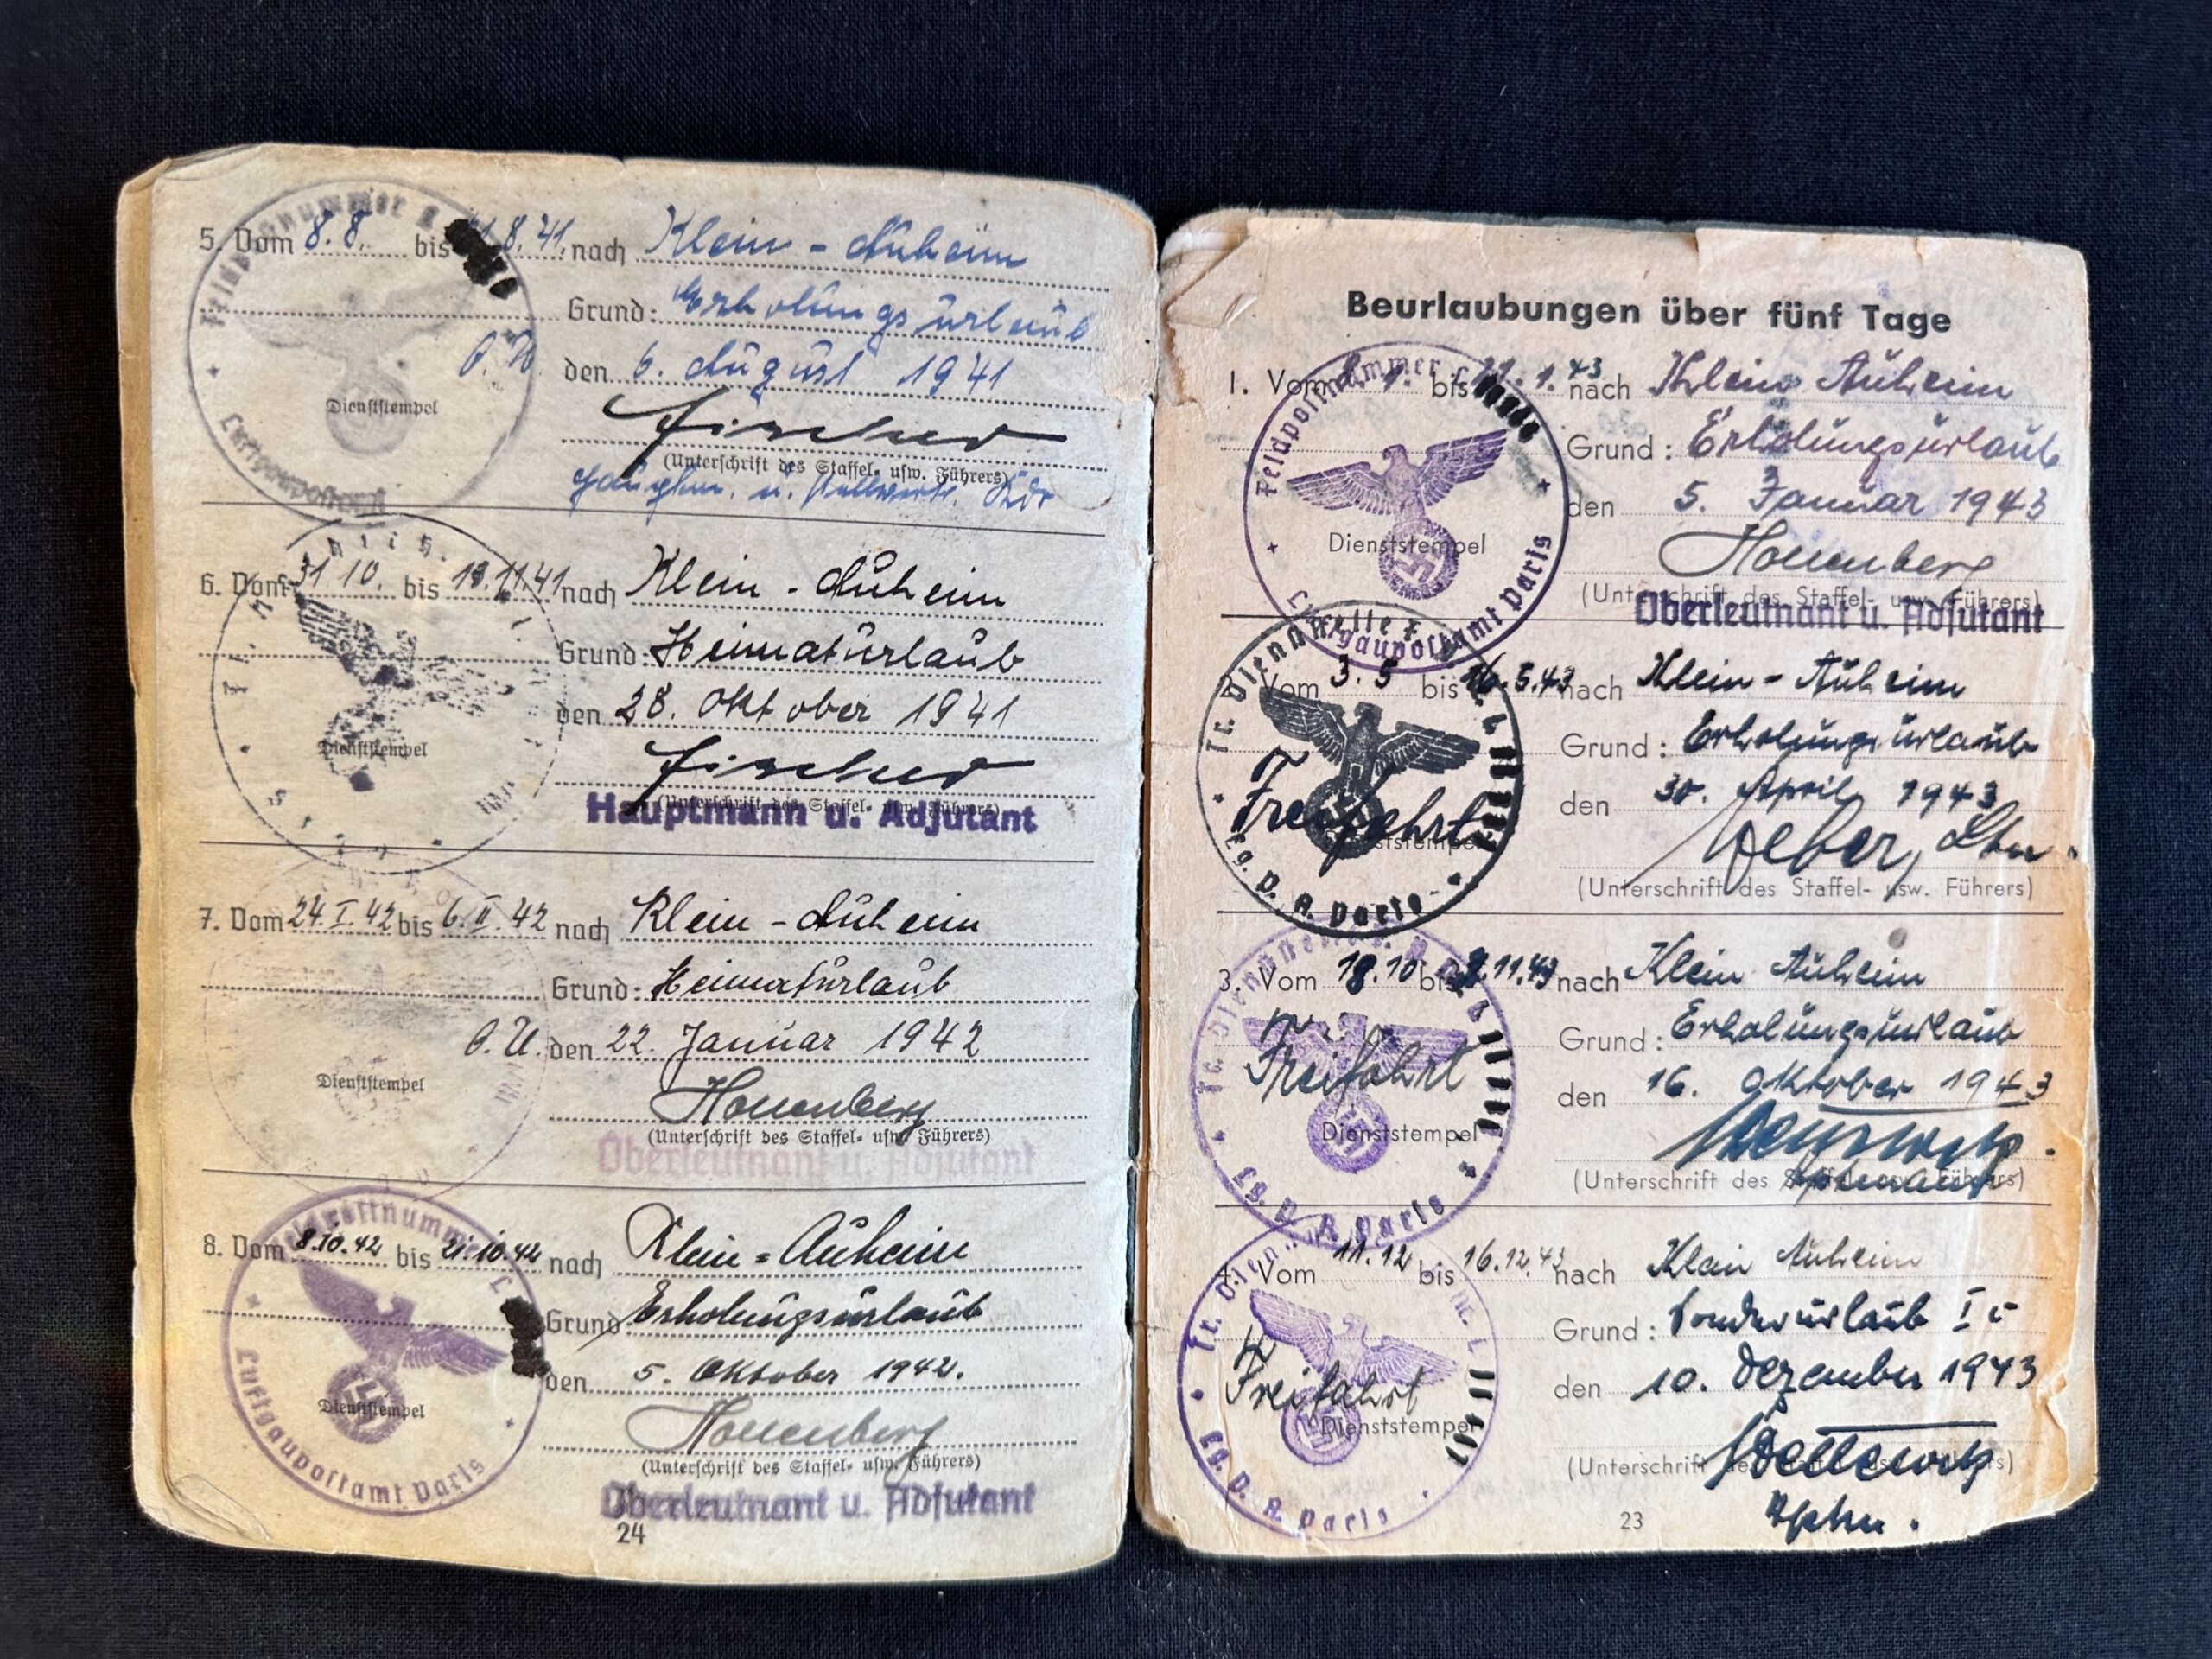 5. Vom 8.8. bis 8.41. nach Klein-Auheim
Grund: Erholungsurlaub
O.U. den 6. August 1941
Dienststempel
Fischer
(Unterschrift des Staffel- usw. Führers)
Hauptm. u.
Feldpostnummer
Luftgaupostamt
6. Vom 31.10. bis 13.11.41 nach Klein-Auheim
Grund: Heimaturlaub
den 28. Oktober 1941
Dienststempel
Fischer
(Unterschrift des Staffel- usw. Führers)
Hauptmann u. Adjutant
7. Vom 24.I.42 bis 6.II.42 nach Klein-Auheim
Grund: Heimaturlaub
O.U. den 22. Januar 1942
Dienststempel
Honenberg
(Unterschrift des Staffel- usw. Führers)
Oberleutnant u. Adjutant
8. Vom 8.10.42 bis 21.10.42 nach Klein=Auheim
Grund Erholungsurlaub
den 5. Oktober 1942.
Dienststempel
Honenberg
(Unterschrift des Staffel- usw. Führers)
Oberleutnant u. Adjutant
Feldpostnummer L
Luftgaupostamt Paris
24
Beurlaubungen über fünf Tage
1. Vom bis 1.43 nach Klein Auheim
Grund: Erholungsurlaub
den 5. Januar 1943
Dienststempel
Honenberg
(Unterschrift des Staffel- usw. Führers)
Oberleutnant u. Adjutant
Feldpostnummer
Luftgaupostamt Paris
Vom 3.5 bis 16.5.43 nach Klein-Auheim
Grund: Erholungsurlaub
den 30. April 1943
Freifahrt
Dienststempel
Weber, Ltn.
(Unterschrift des Staffel- usw. Führers)
Fr. Dienststelle L
Lg. P. A. Paris
3. Vom 18.10 bis 11.43 nach Klein Auheim
Grund: Erholungsurlaub
den 16. Oktober 1943
Freifahrt
Dienststempel
(Unterschrift des Staffel- usw. Führers)
Lg. P. A. Paris
4. Vom 11.12 bis 16.12.43 nach Klein Auheim
Grund: Sonderurlaub
den 10. Dezember 1943
Freifahrt
Dienststempel
(Unterschrift
Lg. P. A. Paris
23